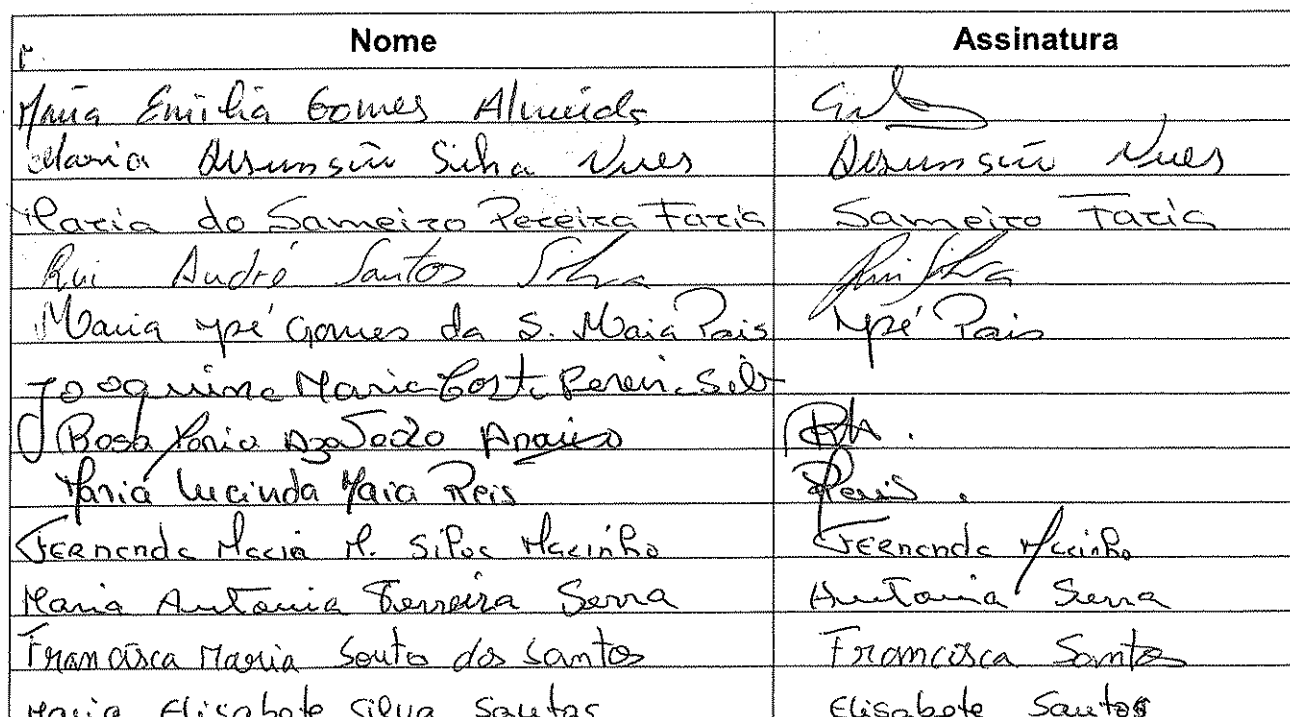 Nome Assinatura
Maria Emília Gomes Almeida
Maria Assunção Silva Nunes Assunção Nunes
Maria do Sameiro Pereira Faria Sameiro Faria
Rui André Santos Silva Rui Silva
Maria José Gomes da S. Maia Pais José Pais
Joaquina Maria Costa Pereira
Rosa Maria Araújo RA.
Maria Lucinda Maia Reis Reis.
Fernanda Maria M. Silva Marinho Fernanda Marinho
Maria Antonia Ferreira Serra Antonia Serra
Francisca Maria Souto dos Santos Francisca Santos
Maria Elisabete Silva Santos Elisabete Santos